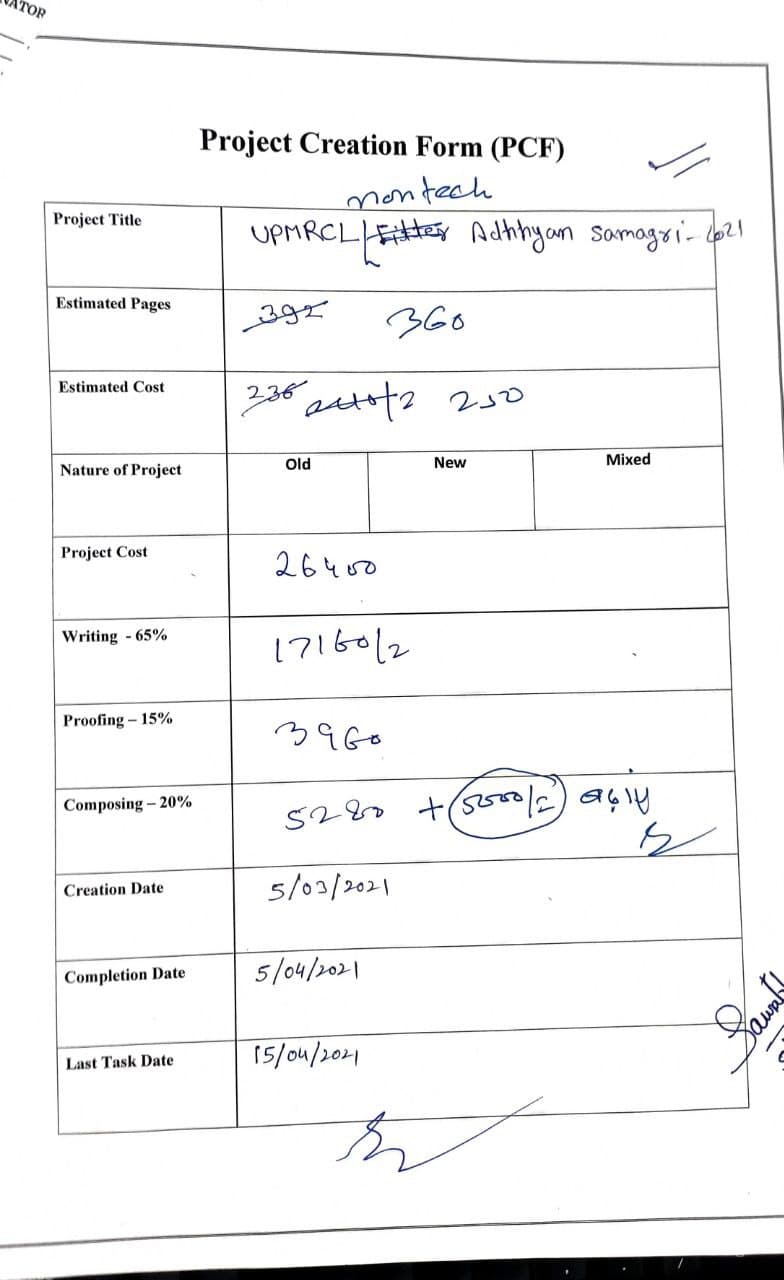 NATOR
Project Creation Form (PCF)
non tech
Project Title UPMRCL Fitter Adhhyan Samagri-2021
Estimated Pages 392 360
Estimated Cost 236 250
Nature of Project Old New Mixed
Project Cost 26400
Writing - 65% 17160/2
Proofing – 15% 3960
Composing – 20% 5280 +
Creation Date 5/03/2021
Completion Date 5/04/2021
Last Task Date 15/04/2021